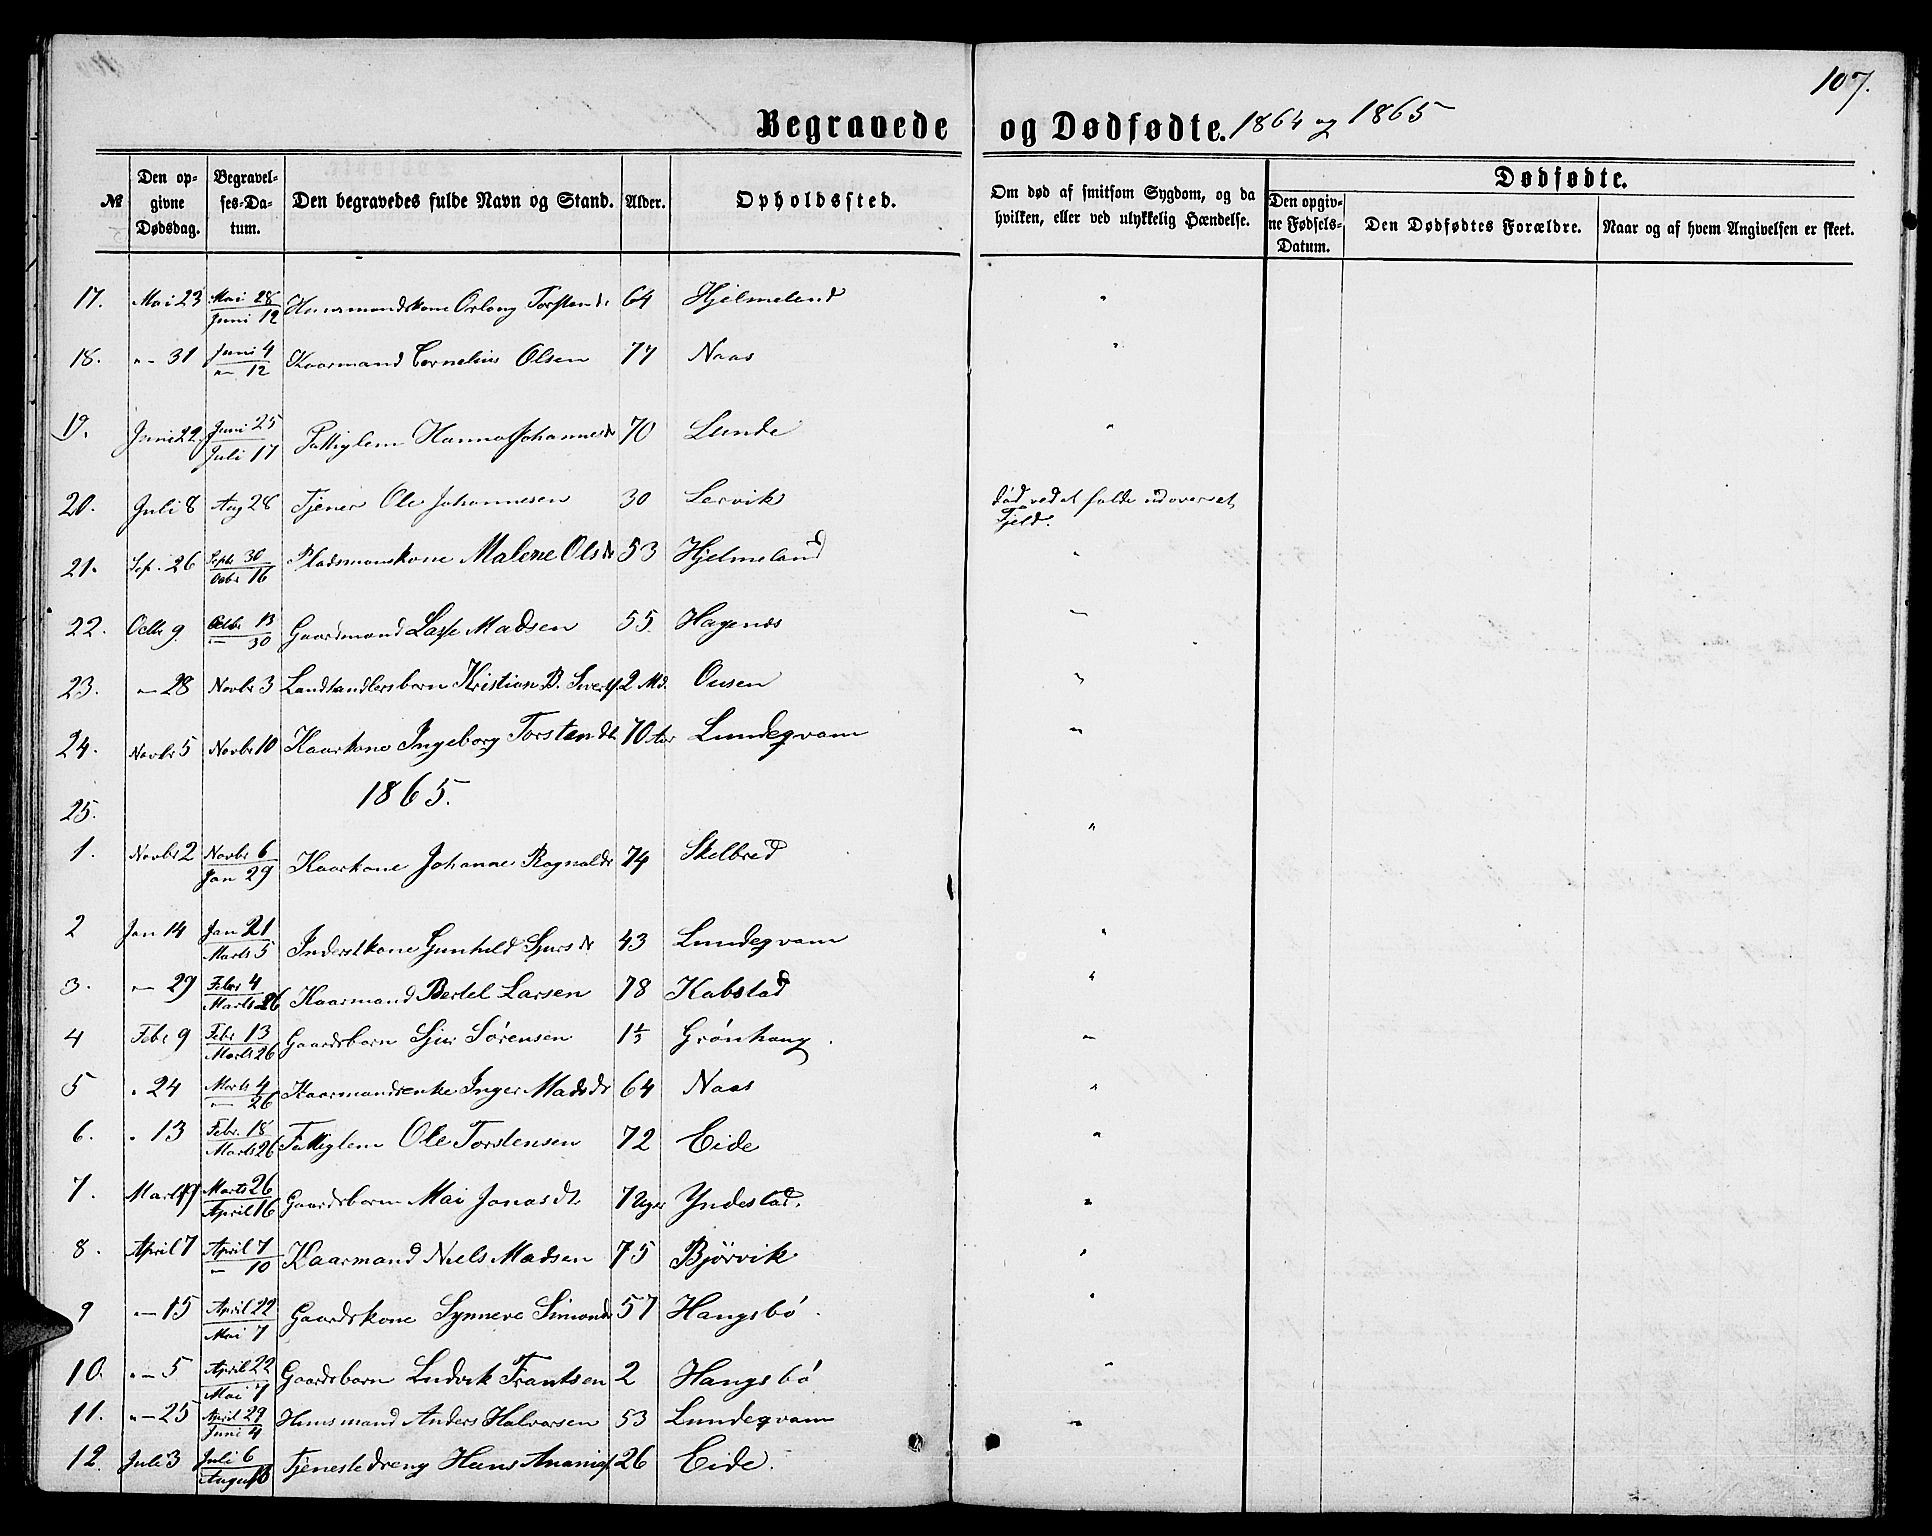 107.
Begravede og Dødfødte. 1864 og 1865
№ Den opgivne Dødsdag. Begravelses-Datum. Den begravedes fulde Navn og Stand. Alder. Opholdssted. Om død af smitsom Sygdom, og da hvilken, eller ved ulykkelig Hændelse. Dødfødte. Den opgivne Fødsels-Datum. Den Dødfødtes Forældre. Naar og af hvem Angivelsen er skeet.
17. Mai 23 Mai 28 Juni 12 Huusmandskone Torstend. 64 Hjelmeland "
18. "— 31 Juni 4 "— 12 Kaarmand Cornelius Olsen 77 Naas "
19. Juni 22 Juni 25 Juli 17 Fattiglem Hanna Johannesd 70 Lunde "
20. Juli 8 Aug 28 Tjener Ole Johannesen 30 Lervik død ved at falde ud over et
Fjeld.
21. Sep. 26 Septr 30 Octbr 16 Pladsmanskone Malene Olsdr 53 Hjelmeland "
22. Octbr 9 Octbr 13 — 30 Gaardmand Lasse Madsen 55 Hagenæs "
23. "— 28 Novbr 3 Landhandlersbarn Kristian B. 2 Md. Ousen "
24. Novbr 5 Novbr 10 Kaarkone Ingeborg Torstendtr 70 Aar Lundeqvam "
1865.
25.
1. Novbr 2 Novbr 6 Jan 29 Kaarkone Johanne Ragnaldr 74 Skelbred "
2 Jan 14 Jan 21 Marts 5 Inderstkone Gunhild Sjursdr 43 Lundeqvam "
3. "— 29 Febr 4 Marts 26 Kaarmand Bertel Larsen 78 Kabstad "
4 Febr 9 Febr 13 Marts 26 Gaardsbarn Sjur Sörensen 1⅓ Grönhaug. "
5 " 24 Marts 4 "— 26 Kaarmandsenke Inger Madsdr 64 Naas "
6. " 13 Febr. 18 Marts 26 Fattiglem Ole Torstensen 72 Eide "
7. Marts 19 Marts 26 April 16 Gaardsbarn Mai Jonasdtr 7 Uger Yndestad. "
8. April 7 April 7 "— 10 Kaarmand Niels Madsen 75 Björvik "
9 "— 15 April 22 Mai 7 Gaardskone Synneve Simonsdr 57 Haugsbö. "
10. "— 5 April 22 Mai 7 Gaardsbarn Ludvik Frantsen 2 Haugsbö "
11. "— 25 April 29 Juni 4 Husmand Anders Halvorsen 53 Lundeqvam "
12. Juli 3 Juli 6 August 13 Tjenestedreng Hans 26 Eide.